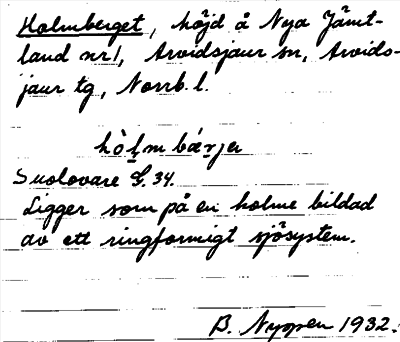 Holmberget, höjd å Nya Jämt-
land nr 1, Arvidsjaur sn, Arvids-
jaur tg, Norrb. l.
hòlm bárjer
Suolovare G. 34.
Ligger som på en holme bildad
av ett ringformigt sjösystem.
B. Nyppen 1932.